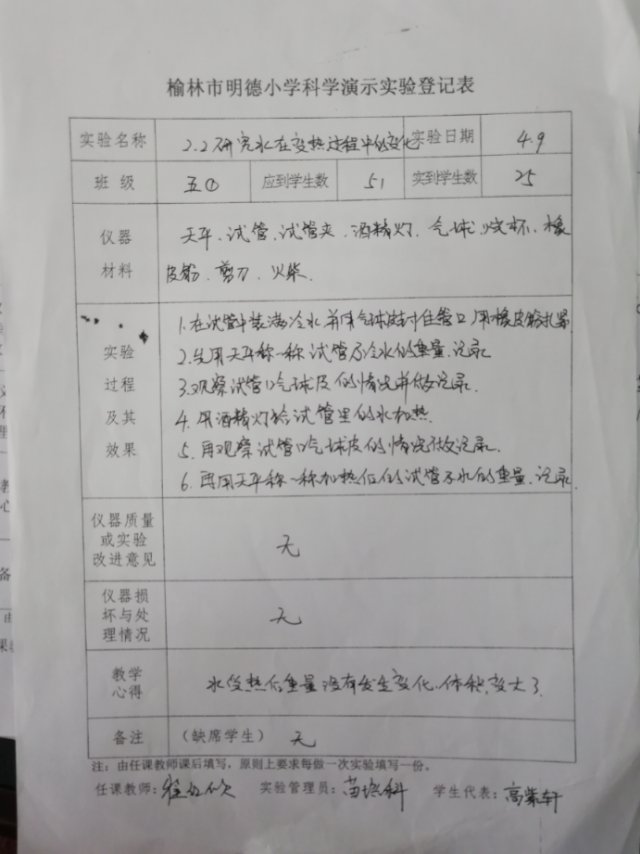 榆林市明德小学科学演示实验登记表
实验名称 2.2研究水在变热过程中的变化 实验日期 4.9
班级 五① 应到学生数 51 实到学生数 25
仪器材料 天平、试管、试管夹、酒精灯、气球、烧杯、橡
皮筋、剪刀、火柴.
实验过程及其效果
1.在试管中装满冷水,并用气球皮封住管口,用橡皮筋扎紧
2.先用天平称一称试管及冷水的重量,记录
3.观察试管口气球皮的情况并做记录.
4.用酒精灯给试管里的水加热.
5.再观察试管口气球皮的情况做记录.
6.再用天平称一称加热后的试管及水的重量,记录.
仪器质量或实验改进意见 无
仪器损坏与处理情况 无
教学心得 水受热后重量没有发生变化,体积变大了.
备注 (缺席学生) 无
注:由任课教师课后填写,原则上要求每做一次实验填写一份。
任课教师: 实验管理员: 学生代表:高紫轩